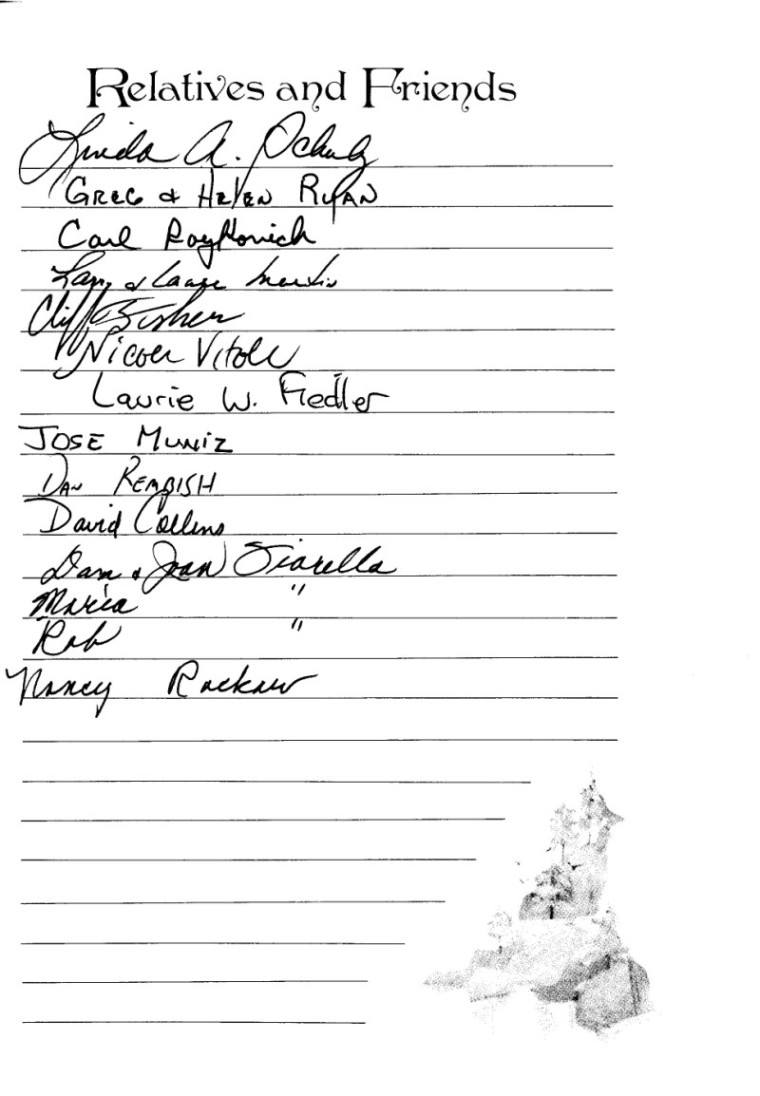 Relatives and Friends
Linda A. Schulz
GREG & HELEN RYAN
Carl Raykovich
Larry &
Cliff Fisher
Nicole Vitale
Laurie W. Fiedler
JOSE MUNIZ
DAN REMBISH
David Collins
Dan & Joan Fiarella
Maria "
Rob "
Nancy Rackow